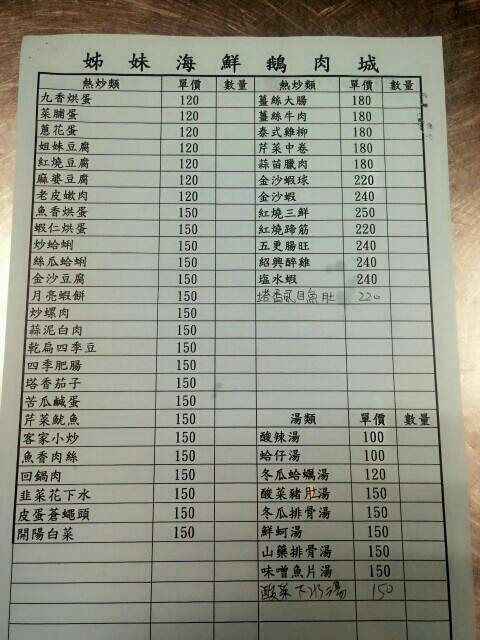 姊妹海鮮鵝肉城
熱炒類 單價 數量
九香烘蛋 120
菜脯蛋 120
蔥花蛋 120
姐妹豆腐 120
紅燒豆腐 120
麻婆豆腐 120
老皮嫩肉 120
魚香烘蛋 150
蝦仁烘蛋 150
炒蛤蜊 150
絲瓜蛤蜊 150
金沙豆腐 150
月亮蝦餅 150
炒螺肉 150
蒜泥白肉 150
乾扁四季豆 150
四季肥腸 150
塔香茄子 150
苦瓜鹹蛋 150
芹菜魷魚 150
客家小炒 150
魚香肉絲 150
回鍋肉 150
韭菜花下水 150
皮蛋蒼蠅頭 150
開陽白菜 150
熱炒類 單價 數量
薑絲大腸 180
薑絲牛肉 180
泰式雞柳 180
芹菜中卷 180
蒜苗臘肉 180
金沙蝦球 220
金沙蝦 240
紅燒三鮮 250
紅燒蹄筋 220
五更腸旺 240
紹興醉雞 240
塩水蝦 240
塔香虱目魚肚 220
湯類 單價 數量
酸辣湯 100
蛤仔湯 100
冬瓜蛤蠣湯 120
酸菜豬肚湯 150
冬瓜排骨湯 150
鮮蚵湯 150
山藥排骨湯 150
味噌魚片湯 150
酸菜下水湯 150